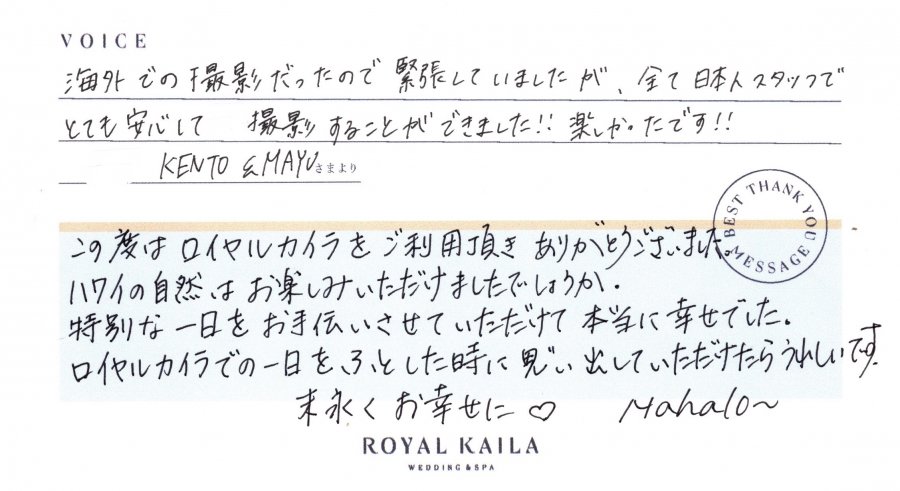 VOICE
海外での撮影だったので緊張していましたが、全て日本人スタッフで
とても安心して 撮影することができました!! 楽しかったです!!
KENTO & MAYU さまより
BEST THANK YOU MESSAGE
この度はロイヤルカイラをご利用頂きありがとうございました。
ハワイの自然はお楽しみいただけましたでしょうか。
特別な一日をお手伝いさせていただけて本当に幸せでした。
ロイヤルカイラでの一日を、ふとした時に思い出していただけたらうれしいです。
末永くお幸せに♡ Mahalo〜
ROYAL KAILA
WEDDING & SPA